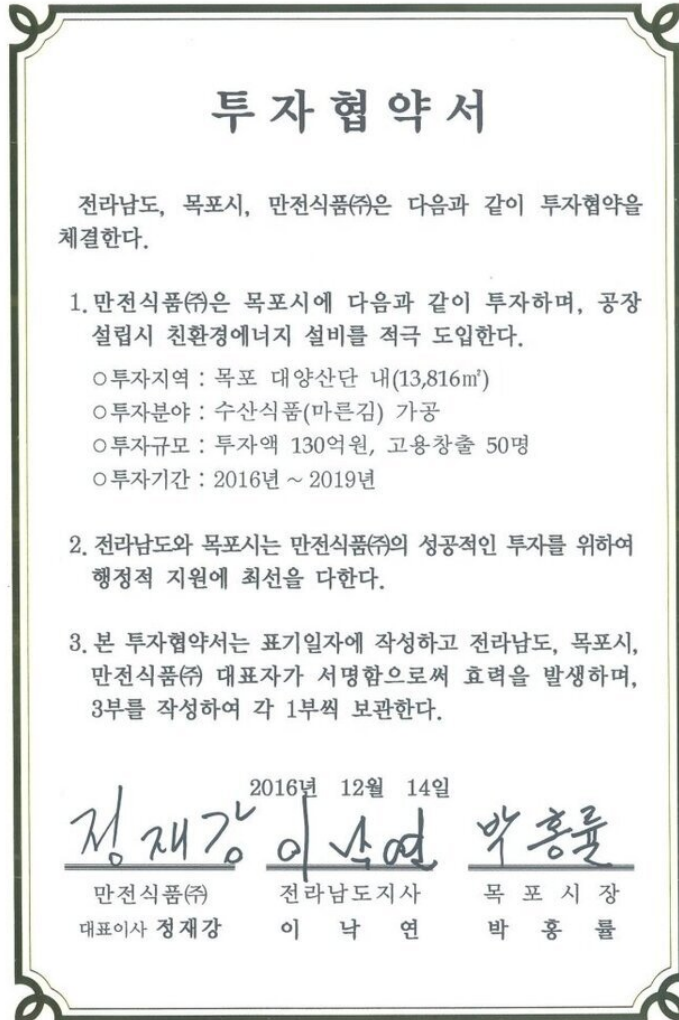 투자협약서
전라남도, 목포시, 만전식품㈜은 다음과 같이 투자협약을
체결한다.
1. 만전식품㈜은 목포시에 다음과 같이 투자하며, 공장
설립시 친환경에너지 설비를 적극 도입한다.
○투자지역 : 목포 대양산단 내(13,816㎡)
○투자분야 : 수산식품(마른김) 가공
○투자규모 : 투자액 130억원, 고용창출 50명
○투자기간 : 2016년 ~ 2019년
2. 전라남도와 목포시는 만전식품㈜의 성공적인 투자를 위하여
행정적 지원에 최선을 다한다.
3. 본 투자협약서는 표기일자에 작성하고 전라남도, 목포시,
만전식품㈜ 대표자가 서명함으로써 효력을 발생하며,
3부를 작성하여 각 1부씩 보관한다.
2016년 12월 14일
정재강 이낙연 박홍률
만전식품㈜ 전라남도지사 목 포 시 장
대표이사 정재강 이 낙 연 박 홍 률